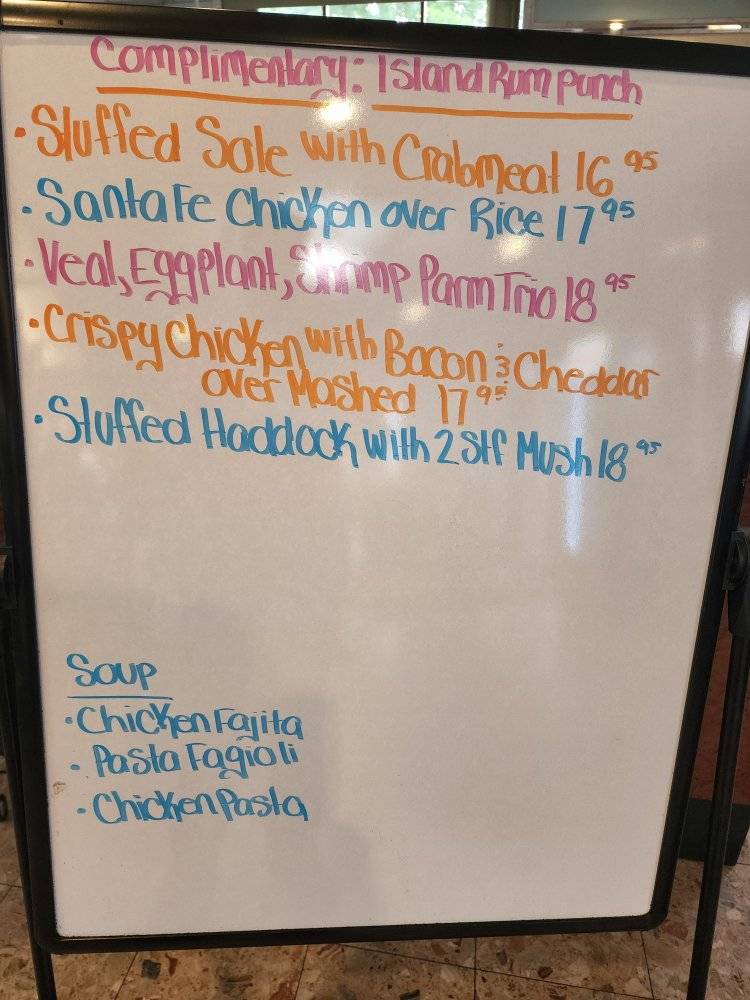 Complimentary: Island Rum punch
• Stuffed Sole with Crabmeat 16 95
• Santa Fe Chicken over Rice 17 95
• Veal, Eggplant, Shrimp Parm Trio 18 95
• Crispy Chicken with Bacon & Cheddar
over Mashed 17 95
• Stuffed Haddock with 2 Stf Mush 18 95
Soup
• Chicken Fajita
• Pasta Fagioli
• Chicken Pasta